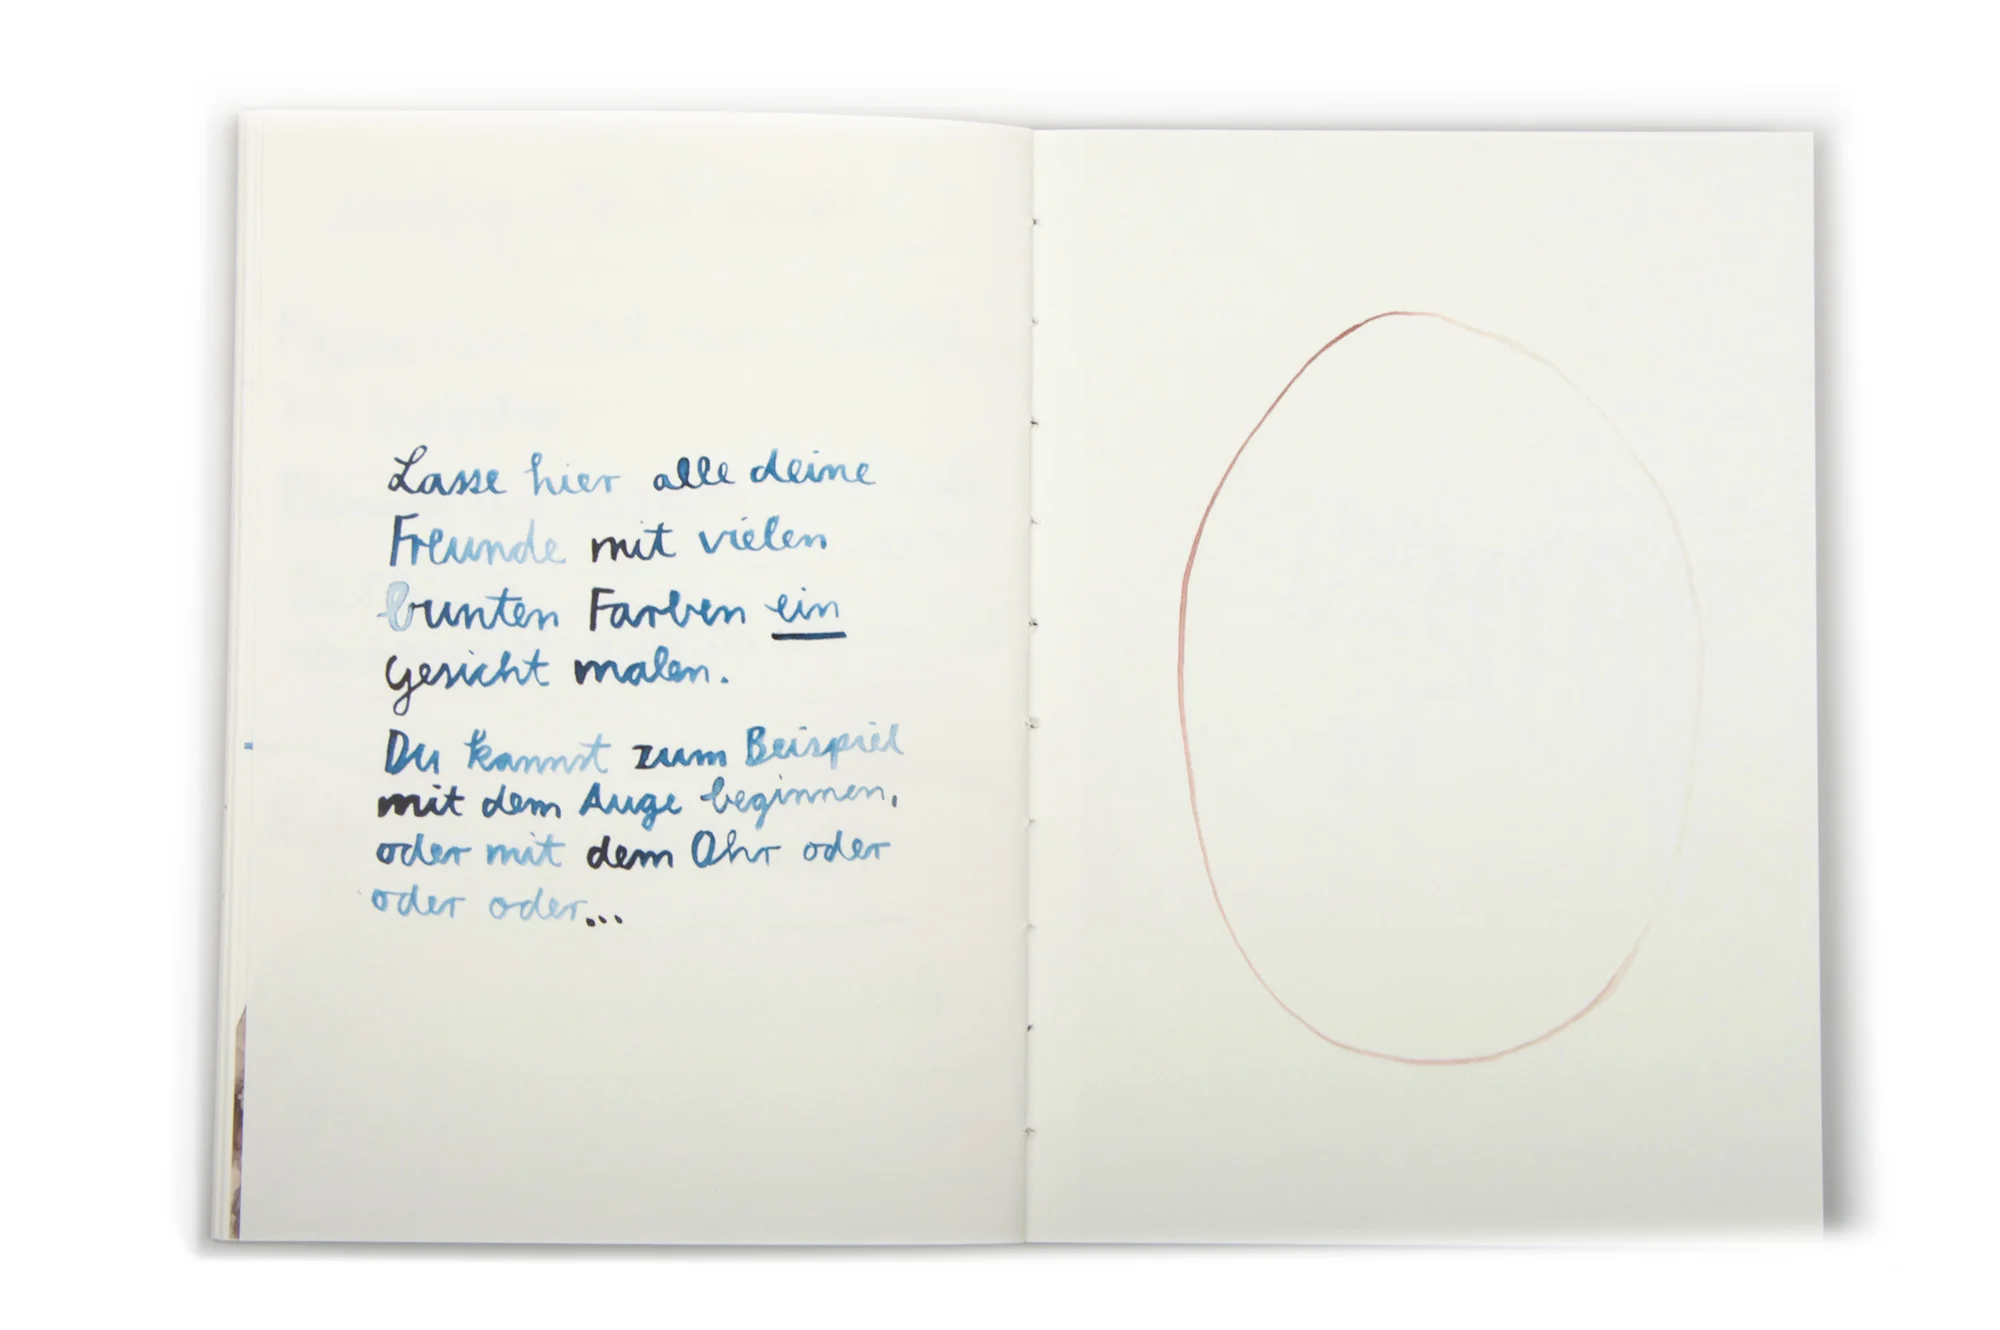 Lasse hier alle deine
Freunde mit vielen
bunten Farben ein
Gesicht malen.
Du kannst zum Beispiel
mit dem Auge beginnen,
oder mit dem Ohr oder
oder oder...